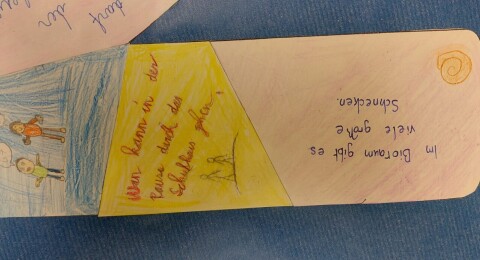 darf
der
Man kann in der
Pause durch das
Schulhaus gehen.
Im Bioraum gibt es
viele große
Schnecken.